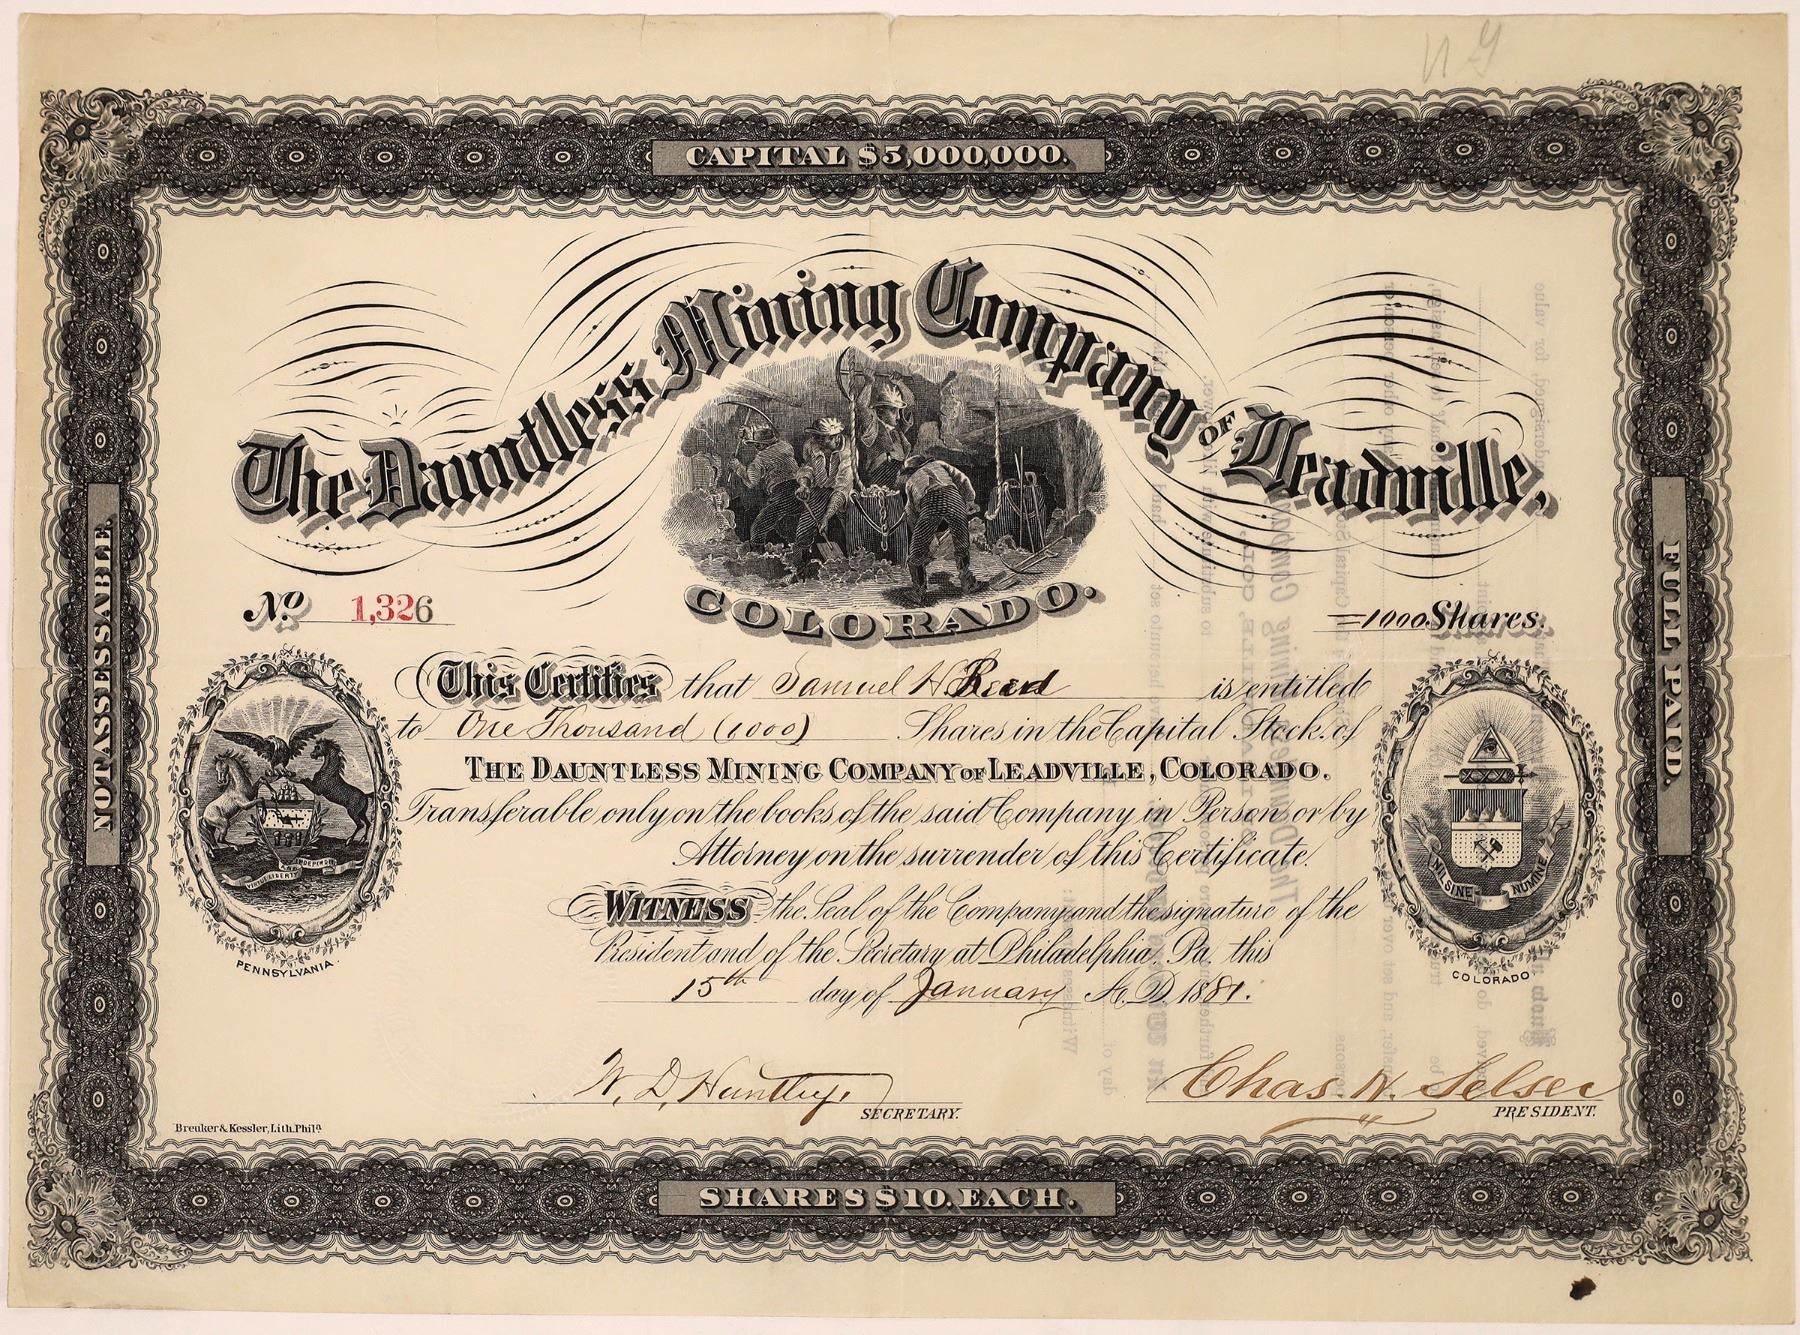 CAPITAL $5,000,000.
The Dauntless Mining Company OF Leadville,
COLORADO.
No. 1,326
=1000 Shares.
This Certifies that Samuel H Reed is entitled
to One Thousand (1000) Shares in the Capital Stock of
THE DAUNTLESS MINING COMPANY OF LEADVILLE, COLORADO.
Transferable only on the books of the said Company in Person or by
Attorney on the surrender of this Certificate.
WITNESS the Seal of the Company and the signature of the
President and of the Secretary at Philadelphia, Pa. this
15th day of January A.D. 1881.
W. D. Huntley.
SECRETARY.
Chas H. Selser
PRESIDENT.
NOT ASSESSABLE.
FULL PAID.
VIRTUE LIBERTY AND INDEPENDENCE
PENNSYLVANIA.
NIL SINE NUMINE
COLORADO
Breuker & Kessler, Lith. Phila.
SHARES $10. EACH.